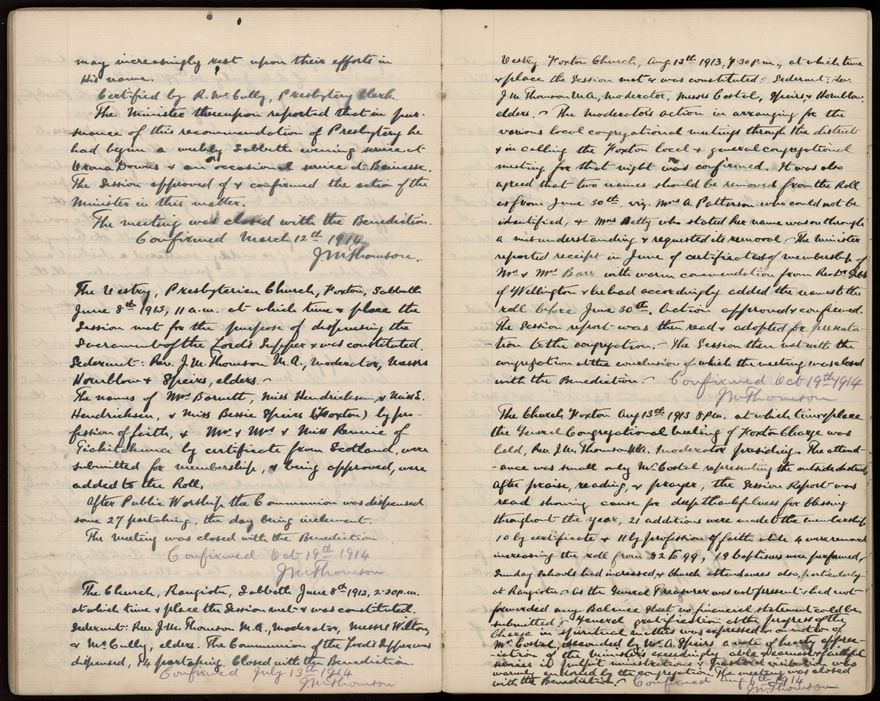 may increasingly rest upon their efforts in
His name.
Certified by R. McCully, Presbytery Clerk.
The Minister thereupon reported that in pur-
suance of this recommendation of Presbytery he
had begun a weekly Sabbath evening service at
Downs & an occasional service at
The Session approved of & confirmed the action of the
Minister in this matter.
The meeting was closed with the Benediction.
Confirmed March 12th 1914
J M Thomson.
The Vestry, Presbyterian Church, Foxton, Sabbath
June 8th 1913, 11 a.m. at which time & place the
Session met for the purpose of dispensing the
Sacrament of the Lord's Supper & was constituted.
Sederunt: Rev. J. M. Thomson M.A., Moderator, Messrs
Hornblow & Speirs, elders.
The names of Mrs Barnett, Miss Hendriksen, & Miss E.
Hendriksen, & Miss Bessie Speirs (Foxton) by pro-
fession of faith, & Mr & Mrs & Miss Rennie of
by certificate from Scotland, were
submitted for membership, & being approved, were
added to the Roll.
After Public Worship the Communion was dispensed
some 27 partaking, the day being inclement.
The meeting was closed with the Benediction.
Confirmed Oct 19th 1914
J M Thomson
The Church, Rangiotu, Sabbath June 8th 1913, 2.30 p.m.
at which time & place the Session met & was constituted.
Sederunt: Rev. J. M. Thomson M.A., Moderator, Messrs Wilton,
& McCully, elders. The Communion of the Lord's Supper was
dispensed, 54 partaking. Closed with the Benediction.
Confirmed July 13th 1914
J M Thomson
Vestry Foxton Church, Aug 13th 1913, 7.30 p.m., at which time
& place the Session met & was constituted. Sederunt: Rev.
J. M. Thomson M.A., Moderator, Messrs Costal, Speirs, & Hornblow,
elders. The Moderator's action in arranging for the
various local congregational meetings through the district
& in calling the Foxton local & general congregational
meeting for that night was confirmed. It was also
agreed that two names should be removed from the Roll
as from June 30th viz. Mrs A. Patterson who could not be
identified, & Mrs Betty who stated her name was on through
a misunderstanding & requested its removal. The Minister
reported receipt in June of certificates of membership of
Mr & Mrs Barr with warm commendation from Rev Dr Gibb
of Wellington & he had accordingly added the names to the
roll before June 30th. Action approved & confirmed.
The Session report was then read & adopted for presenta-
tion to the congregation. The Session then met with the
congregation at the conclusion of which the meeting was closed
with the Benediction. Confirmed Oct 19th 1914
J M Thomson
The Church Foxton Aug 13th 1913 8 p.m. at which time & place
the General Congregational Meeting of Foxton Charge was
held, Rev. J. M. Thomson M.A. Moderator presiding. The attend-
ance was small only Mr Costal representing the outside districts.
After praise, reading, & prayer, the Session Report was
read showing cause for deep thankfulness for blessing
throughout the year, 21 additions were made to the membership
10 by certificate & 11 by profession of faith while 4 were removed
increasing the roll from 82 to 99, 19 baptisms were performed,
Sunday Schools had increased, & church attendances also, particularly
at Rangiotu. As the General Treasurer was not present & had not
forwarded any Balance Sheet no financial statement could be
submitted. General gratification at the progress of the
Charge in spiritual matters was expressed & on motion of
Mr Costal, seconded by Mr A. Speirs a vote of hearty appreci-
ation of the Minister's exceedingly able, earnest & faithful
service in pulpit ministrations & pastoral visitation was
warmly endorsed by the congregation. The meeting was closed
with the Benediction. Confirmed Aug 6th 1914
J M Thomson